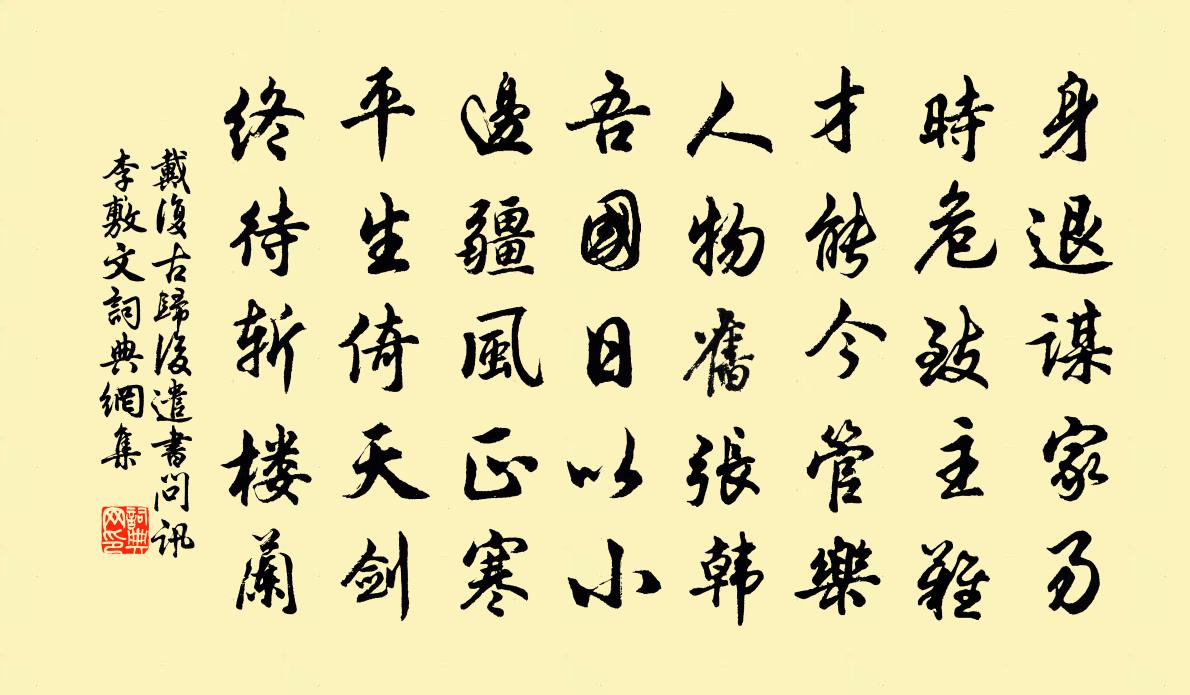 身退謀家易
時危致主難
才能今管樂
人物舊張韩
吾國日以小
邊疆風正寒
平生倚天劍
終待斬楼蘭
戴復古歸後遣書問訊
李敷文詞典網集
詞典网印